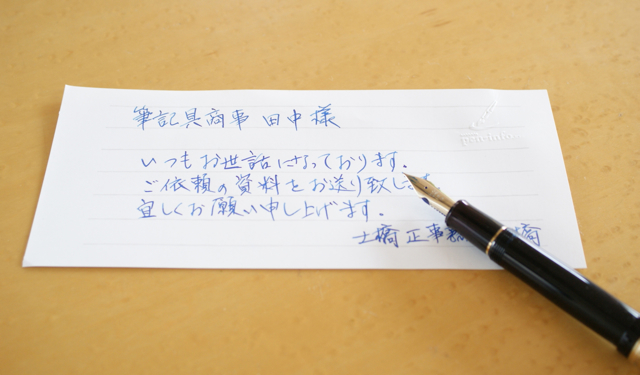 筆記具商事 田中様
pen-info.
いつもお世話になっております.
ご依頼の資料をお送り致します
宜しくお願い申し上げます.
土橋正事務
橋